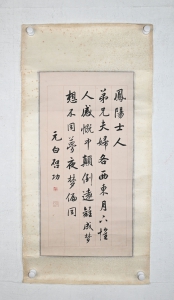 鳳陽士人
弟兄夫婦各西東月六惟
人感慨中顛倒遠離成夢
想不同夢夜夢偏同
元白啓功